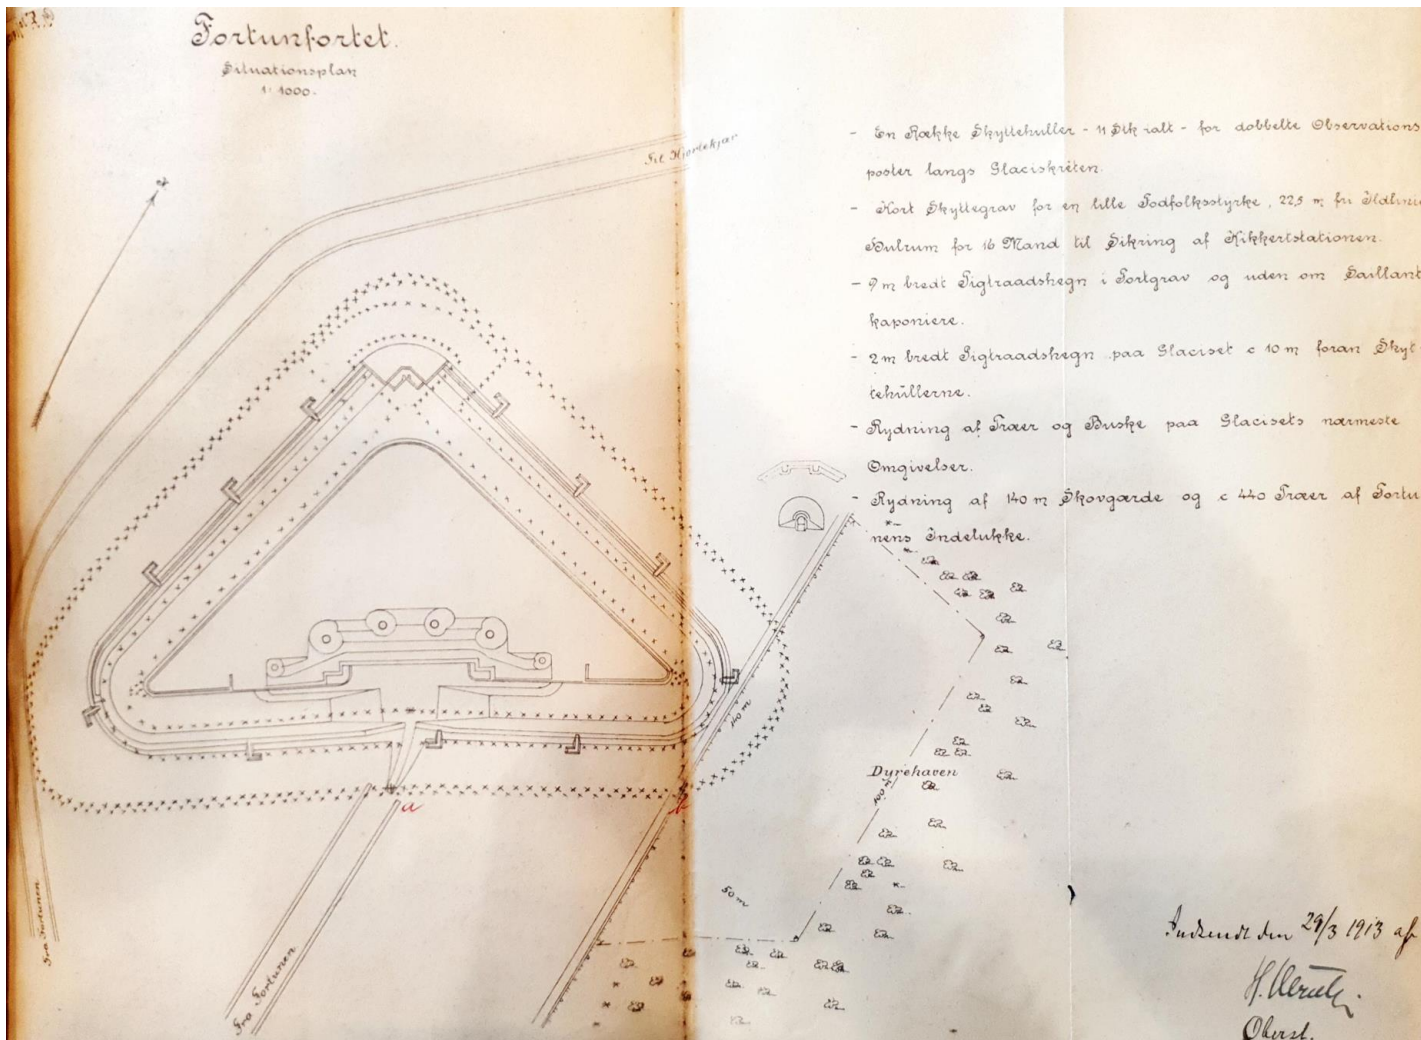 Fortunfortet.
Situationsplan
1:1000.
Til Hjortekjær
- En Række Skyttehuller - 11 Stk ialt - for dobbelte Observations
poster langs Glaciskrêten.
- Kort Skyttegrav for en lille Fodfolksstyrke, 22,5 m fri Ildlinie
Bulrum for 16 Mand til Sikring af Kikkertstationen.
- 9 m bredt Pigtraadshegn i Fortgrav og uden om Saillant
kaponiere.
- 2 m bredt Pigtraadshegn paa Glaciset c 10 m foran Skyt-
tehullerne.
- Rydning af Træer og Buske paa Glacisets nærmeste
Omgivelser.
- Rydning af 140 m Skovgærde og c 440 Træer af Fortu
nens Indelukke.
140 m
Dyrehaven
a
b
50 m
Fra Fortunen
Fra Fortunen
Indsendt den 29/3 1913 af
Oberst.